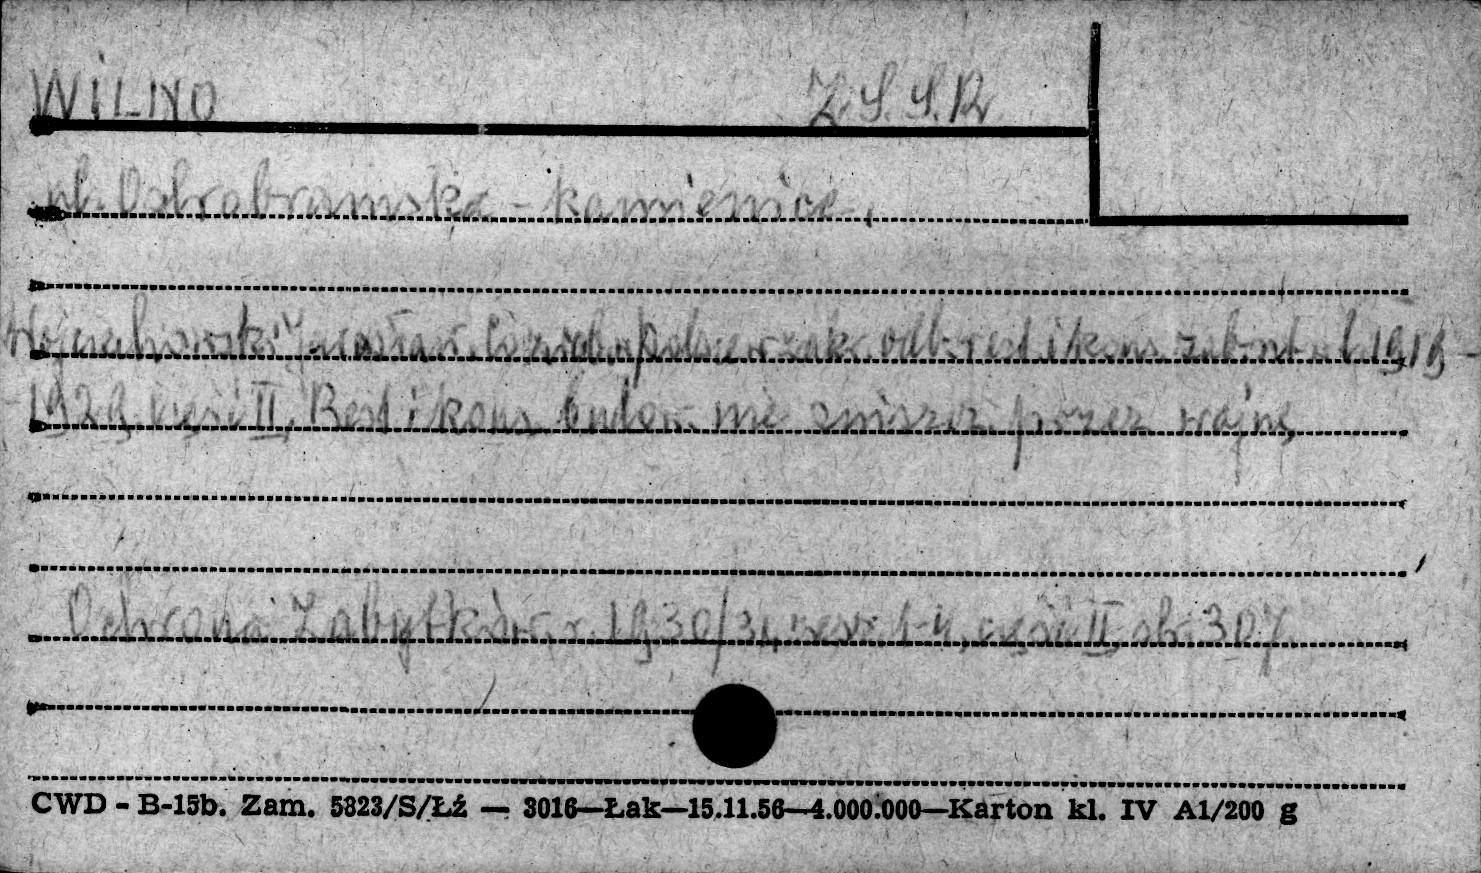 WILNO Z.S.S.R
ul. Ostrobramska - kamienice,
Wojciechowski Jarosław odb. rest. i kons. zabyt. 1919 -
1929 część II, Rest i kons. budow. nie zniszcz. przez wojnę
Ochrona Zabytków r 1930/31, zesz 1-4, część II, str 307.
CWD - B-15b. Zam. 5823/S/Łź — 3016—Łak—15.11.56—4.000.000—Karton kl. IV A1/200 g